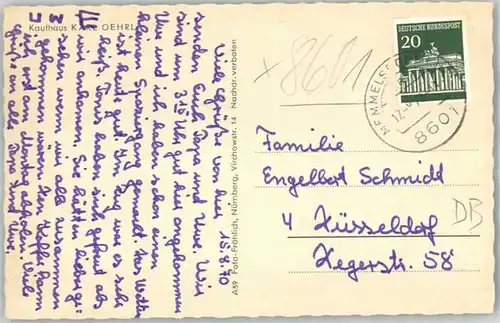 Kaufhaus KARL OEHRL
Viele Grüße von hier 15.8.70
senden Euch Papa und Uwe. Wir
sind um 3.15 Uhr gut hier angekommen
Uwe und ich haben schon einen
kleinen Spaziergang gemacht. Das Wetter
ist heute gut. Im Zug war es sehr
heiß. haben sich gefreut als
wir ankamen. Sie hätten lieber ge-
sehen wenn wir alle zusammen
gekommen wären. Den Koffer kann
ich erst am Montag abholen. Viele
Grüße an alle Papa und Uwe.
A59 Foto-Fröhlich, Nürnberg, Virchowstr. 14 Nachdr. verboten
x 8601
DEUTSCHE BUNDESPOST
20
MEMMELSD
17.
8601
Familie
Engelbert Schmidt
4 Düsseldorf
Hegerstr. 58
DB